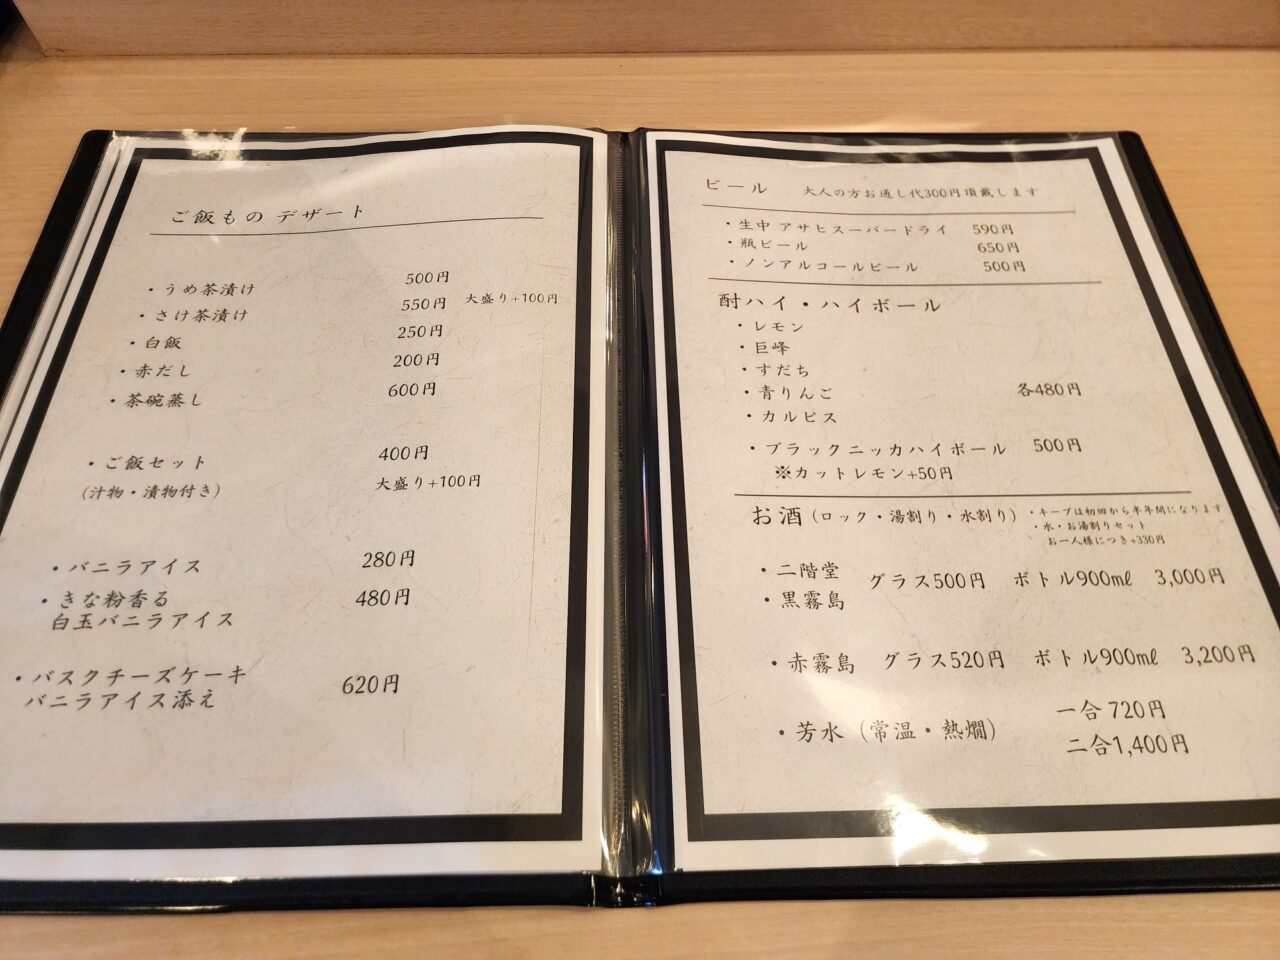 ご飯もの デザート
・うめ茶漬け 500円
・さけ茶漬け 550円 大盛り+100円
・白飯 250円
・赤だし 200円
・茶碗蒸し 600円
・ご飯セット 400円
(汁物・漬物付き) 大盛り+100円
・バニラアイス 280円
・きな粉香る 480円
白玉バニラアイス
・バスクチーズケーキ 620円
バニラアイス添え
ビール 大人の方お通し代300円頂戴します
・生中 アサヒスーパードライ 590円
・瓶ビール 650円
・ノンアルコールビール 500円
酎ハイ・ハイボール
・レモン
・巨峰
・すだち
・青りんご 各480円
・カルピス
・ブラックニッカハイボール 500円
※カットレモン+50円
お酒(ロック・湯割り・水割り) ・キープは初回から半年間になります
・水・お湯割りセット
お一人様につき+330円
・二階堂 グラス500円 ボトル900㎖ 3,000円
・黒霧島
・赤霧島 グラス520円 ボトル900㎖ 3,200円
・芳水 (常温・熱燗) 一合 720円
二合1,400円